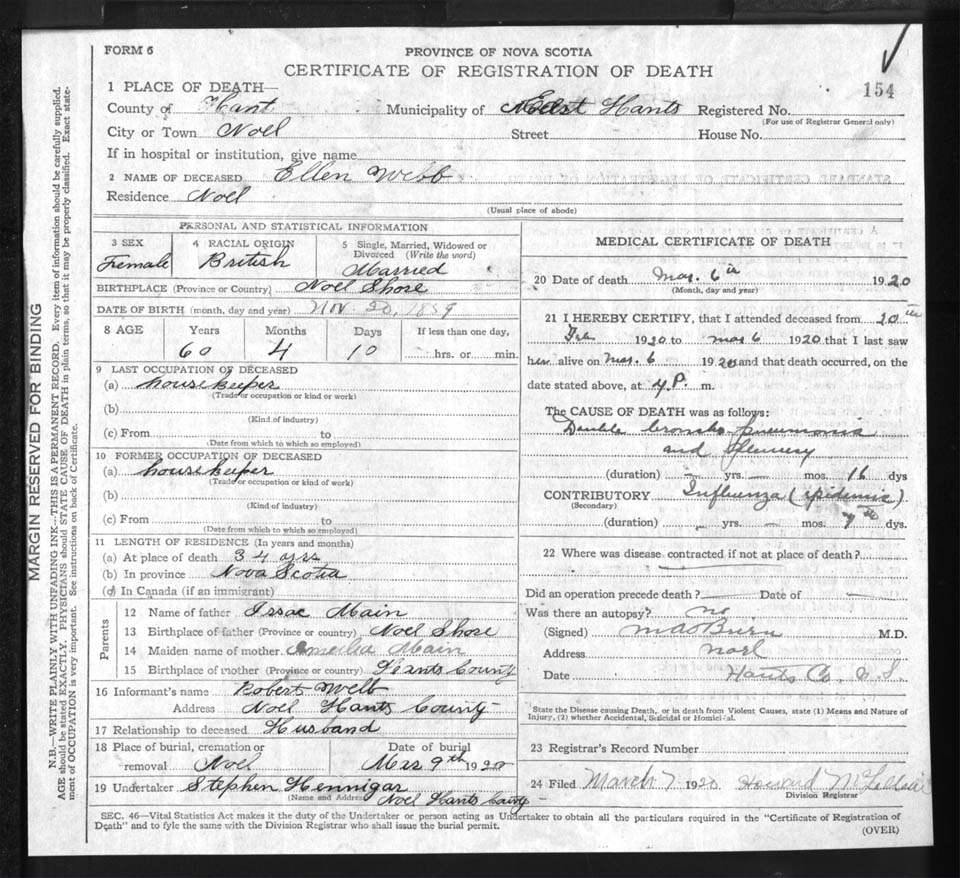 FORM 6
PROVINCE OF NOVA SCOTIA
CERTIFICATE OF REGISTRATION OF DEATH
154
1 PLACE OF DEATH—
County of Hant Municipality of East Hants Registered No.
(For use of Registrar General only)
City or Town Noel Street House No.
If in hospital or institution, give name
2 NAME OF DECEASED Ellen Webb
Residence Noel
(Usual place of abode)
PERSONAL AND STATISTICAL INFORMATION
3 SEX
Female
4 RACIAL ORIGIN
British
5 Single, Married, Widowed or
Divorced (Write the word)
Married
BIRTHPLACE (Province or Country) Noel Shore
DATE OF BIRTH (month, day and year) Nov. 20, 1859
8 AGE Years Months Days If less than one day,
60 4 10 hrs. or min.
9 LAST OCCUPATION OF DECEASED
(a) housekeeper
(Trade or occupation or kind of work)
(b)
(Kind of industry)
(c) From to
(Date from which to which so employed)
10 FORMER OCCUPATION OF DECEASED
(a) housekeeper
(Trade or occupation or kind of work)
(b)
(Kind of industry)
(c) From to
(Date from which to which so employed)
11 LENGTH OF RESIDENCE (In years and months)
(a) At place of death 34 yrs
(b) In province Nova Scotia
(d) In Canada (if an immigrant)
Parents
12 Name of father Issac Main
13 Birthplace of father (Province or country) Noel Shore
14 Maiden name of mother Amelia Main
15 Birthplace of mother (Province or country) Hants County
16 Informant's name Robert Webb
Address Noel Hants County
17 Relationship to deceased Husband
18 Place of burial, cremation or
removal Noel
Date of burial
Mar 9th 1920
19 Undertaker Stephen Hennigar
(Name and Address) Noel Hants County
MEDICAL CERTIFICATE OF DEATH
20 Date of death Mar. 6th 1920
(Month, day and year)
21 I HEREBY CERTIFY, that I attended deceased from 20th
Feb 1920 to Mar 6 1920 that I last saw
her alive on Mar. 6 1920 and that death occurred, on the
date stated above, at 4 P. m.
The CAUSE OF DEATH was as follows:
Double broncho-pneumonia
and Pleurisy
(duration) — yrs. — mos. 16 dys
CONTRIBUTORY Influenza (epidemic)
(Secondary)
(duration) — yrs. — mos. 7 dys.
22 Where was disease contracted if not at place of death?
Did an operation precede death? — Date of —
Was there an autopsy? no
(Signed) M.D.
Address Noel
Date Hants Co. N.S.
State the Disease causing Death, or in death from Violent Causes, state (1) Means and Nature of
Injury, (2) whether Accidental, Suicidal or Homicidal.
23 Registrar's Record Number
24 Filed March 7 1920 Howard
Division Registrar
SEC. 46—Vital Statistics Act makes it the duty of the Undertaker or person acting as Undertaker to obtain all the particulars required in the "Certificate of Registration of
Death" and to fyle the same with the Division Registrar who shall issue the burial permit.
(OVER)
MARGIN RESERVED FOR BINDING
N.B.—WRITE PLAINLY WITH UNFADING INK—THIS IS A PERMANENT RECORD. Every item of information should be carefully supplied.
AGE should be stated EXACTLY. PHYSICIANS should STATE CAUSE OF DEATH in plain terms, so that it may be properly classified. Exact state-
ment of OCCUPATION is very important. See instructions on back of Certificate.